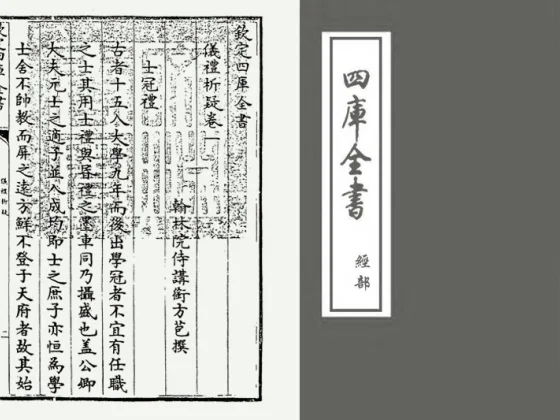 欽定四庫全書
儀禮析疑卷一
翰林院侍講銜方苞撰
士冠禮
古者十五入大學九年而後出學冠者不宜有任職
之士其用士禮與昏禮之墨車同乃攝盛也蓋公卿
大夫元士之適子並入成均即士之庶子亦恒為學
士舍不帥教而屏之遠方鮮不登于天府者故其始
儀禮析疑
二
四庫全書
經部